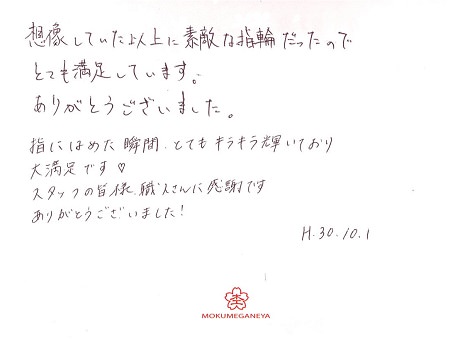 想像していた以上に素敵な指輪だったので
とても満足しています。
ありがとうございました。
指にはめた瞬間、とてもキラキラ輝いており
大満足です♡
スタッフの皆様、職人さんに感謝です
ありがとうございました!
H.30.10.1
MOKUMEGANEYA